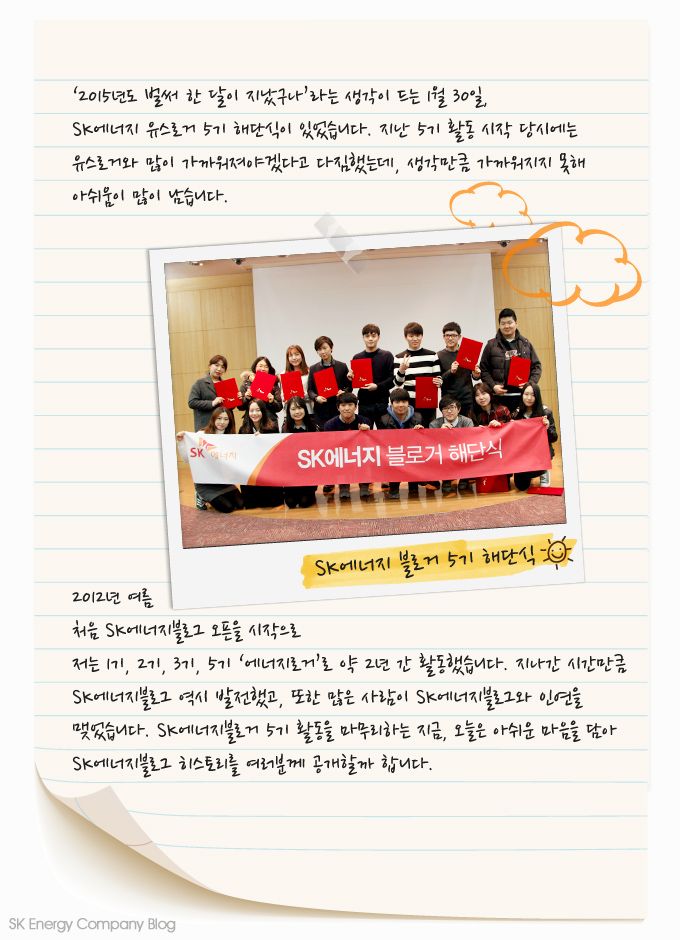 '2015년도 벌써 한 달이 지났구나'라는 생각이 드는 1월 30일,
SK에너지 유스로거 5기 해단식이 있었습니다. 지난 5기 활동 시작 당시에는
유스로거와 많이 가까워져야겠다고 다짐했는데, 생각만큼 가까워지지 못해
아쉬움이 많이 남습니다.
SK에너지
SK에너지 블로거 해단식
SK에너지 블로거 5기 해단식
2012년 여름
처음 SK에너지블로그 오픈을 시작으로
저는 1기, 2기, 3기, 5기 '에너지로거'로 약 2년 간 활동했습니다. 지나간 시간만큼
SK에너지블로그 역시 발전했고, 또한 많은 사람이 SK에너지블로그와 인연을
맺었습니다. SK에너지블로거 5기 활동을 마무리하는 지금, 오늘은 아쉬운 마음을 담아
SK에너지블로그 히스토리를 여러분께 공개할까 합니다.
SK Energy Company Blog